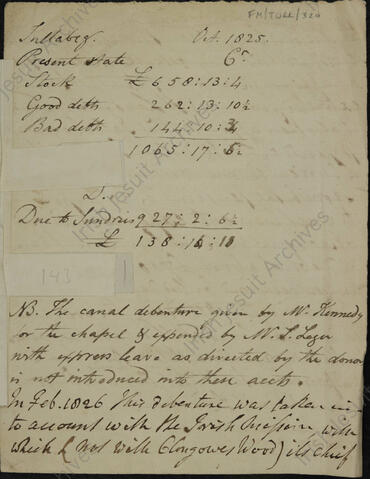 FM/TULL/320
Tullabeg. Oct. 1825.
Present state Cr.
Stock £ 658:13:4
Good debts 262:13:10½
Bad debts 144:10:3¼
1065:17:5½
D..
Due to Sundries 927:2:6½
£ 138:14:11
143
NB. The canal debenture given by Mr. Kennedy
for the chapel & expended by Mr. St. Leger
with express leave as directed by the donor
is not introduced into these accts.
In Feb. 1826 This debenture was taken in
to account with the Irish Mission with
which (not with Clongowes Wood) its chief
Irish Jesuit Archives